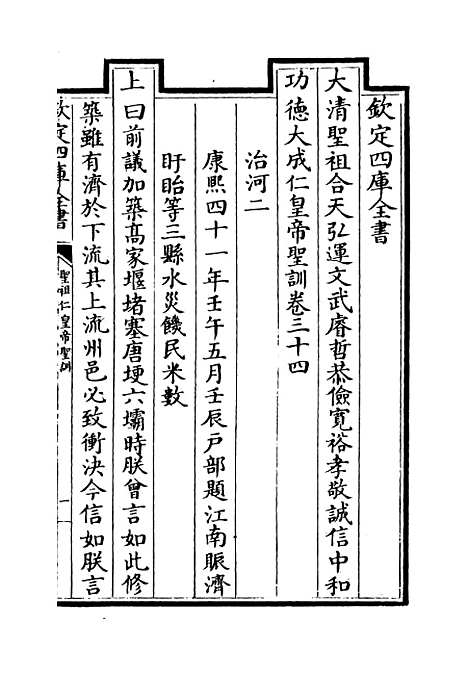 欽定四庫全書
大清聖祖合天弘運文武睿哲恭儉寬裕孝敬誠信中和
功德大成仁皇帝聖訓卷三十四
治河二
康熙四十一年壬午五月壬辰戶部題江南賑濟
盱眙等三縣水災饑民米數
上曰前議加築髙家堰堵塞唐埂六壩時朕曾言如此修
築雖有濟於下流其上流州邑必致衝決今信如朕言
欽定四庫全書
聖祖仁皇帝聖訓
一